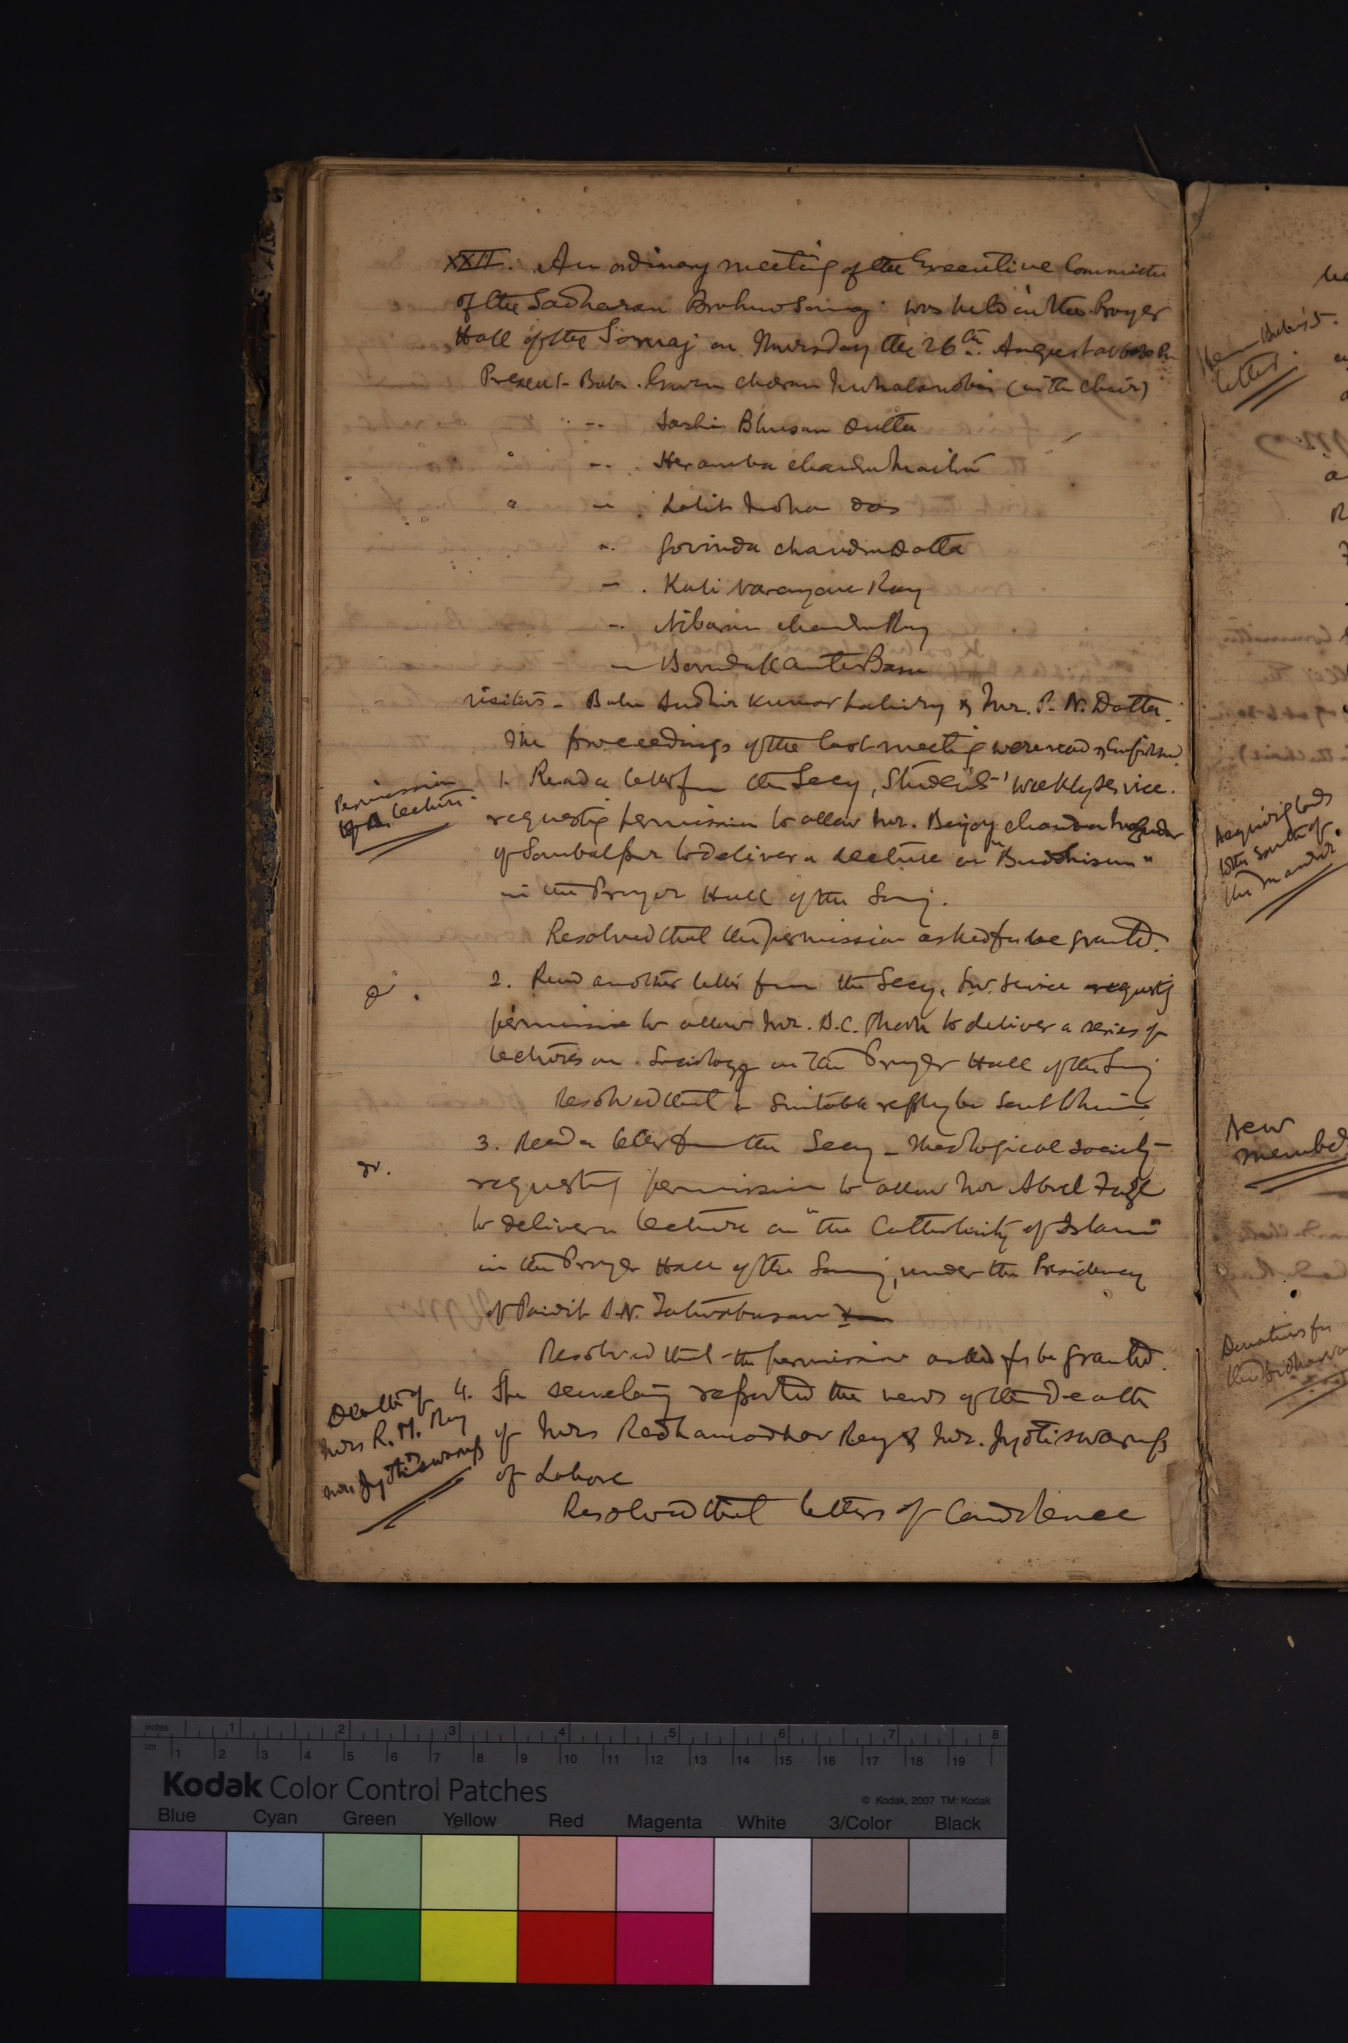 XXII. An ordinary meeting of the Executive Committee
of the Sadharan Brahmo Samaj was held in the Prayer
Hall of the Samaj on Thursday the 26th August at
Present - Babu Guru Charan Mahalanobis (in the chair)
Sashi Bhusan Dutta
Heramba Chandra Maitra
Lalit Mohan Das
Govinda Chandra Datta
Kali Narayan Ray
Nibaran Chandra Ray
Barada Kanta Basu
Visitors - Babu Sudhir Kumar Lahiry & Mr. P. N. Datta.
The proceedings of the last meeting were read & confirmed.
Permission
lecture.
1. Read a letter from the Secy, Students' Weekly Service.
requesting permission to allow Mr. Bejoy Chandra Mazumdar
of Sambalpur to deliver a lecture on "Buddhism"
in the Prayer Hall of the Samaj.
Resolved that the permission asked for be granted.
Do.
2. Read another letter from the Secy, S.W. Service requesting
permission to allow Mr. B.C. to deliver a series of
lectures on Sociology in the Prayer Hall of the Samaj
Resolved that a suitable reply be sent to him
Do.
3. Read a letter from the Secy - Theological Society
requesting permission to allow Mr Abul Fazl
to deliver a lecture on "the Catholicity of Islam"
in the Prayer Hall of the Samaj, under the Presidency
of Pandit S.N. Tattwabhusan
Resolved that the permission asked for be granted.
Death of
Mrs R. M. Ray
Mr Jyotiswarup
4. The secretary reported the news of the death
of Mrs Radhamadhav Ray & Mr. Jyotiswarup
of Lahore
Resolved that letters of Condolence
letter.
Acquiring lands
to the south of
the mandir
New
members
Donations for
inches 1 2 3 4 5 6 7 8
cm 1 2 3 4 5 6 7 8 9 10 11 12 13 14 15 16 17 18 19
Kodak Color Control Patches
© Kodak, 2007 TM: Kodak
Blue Cyan Green Yellow Red Magenta White 3/Color Black